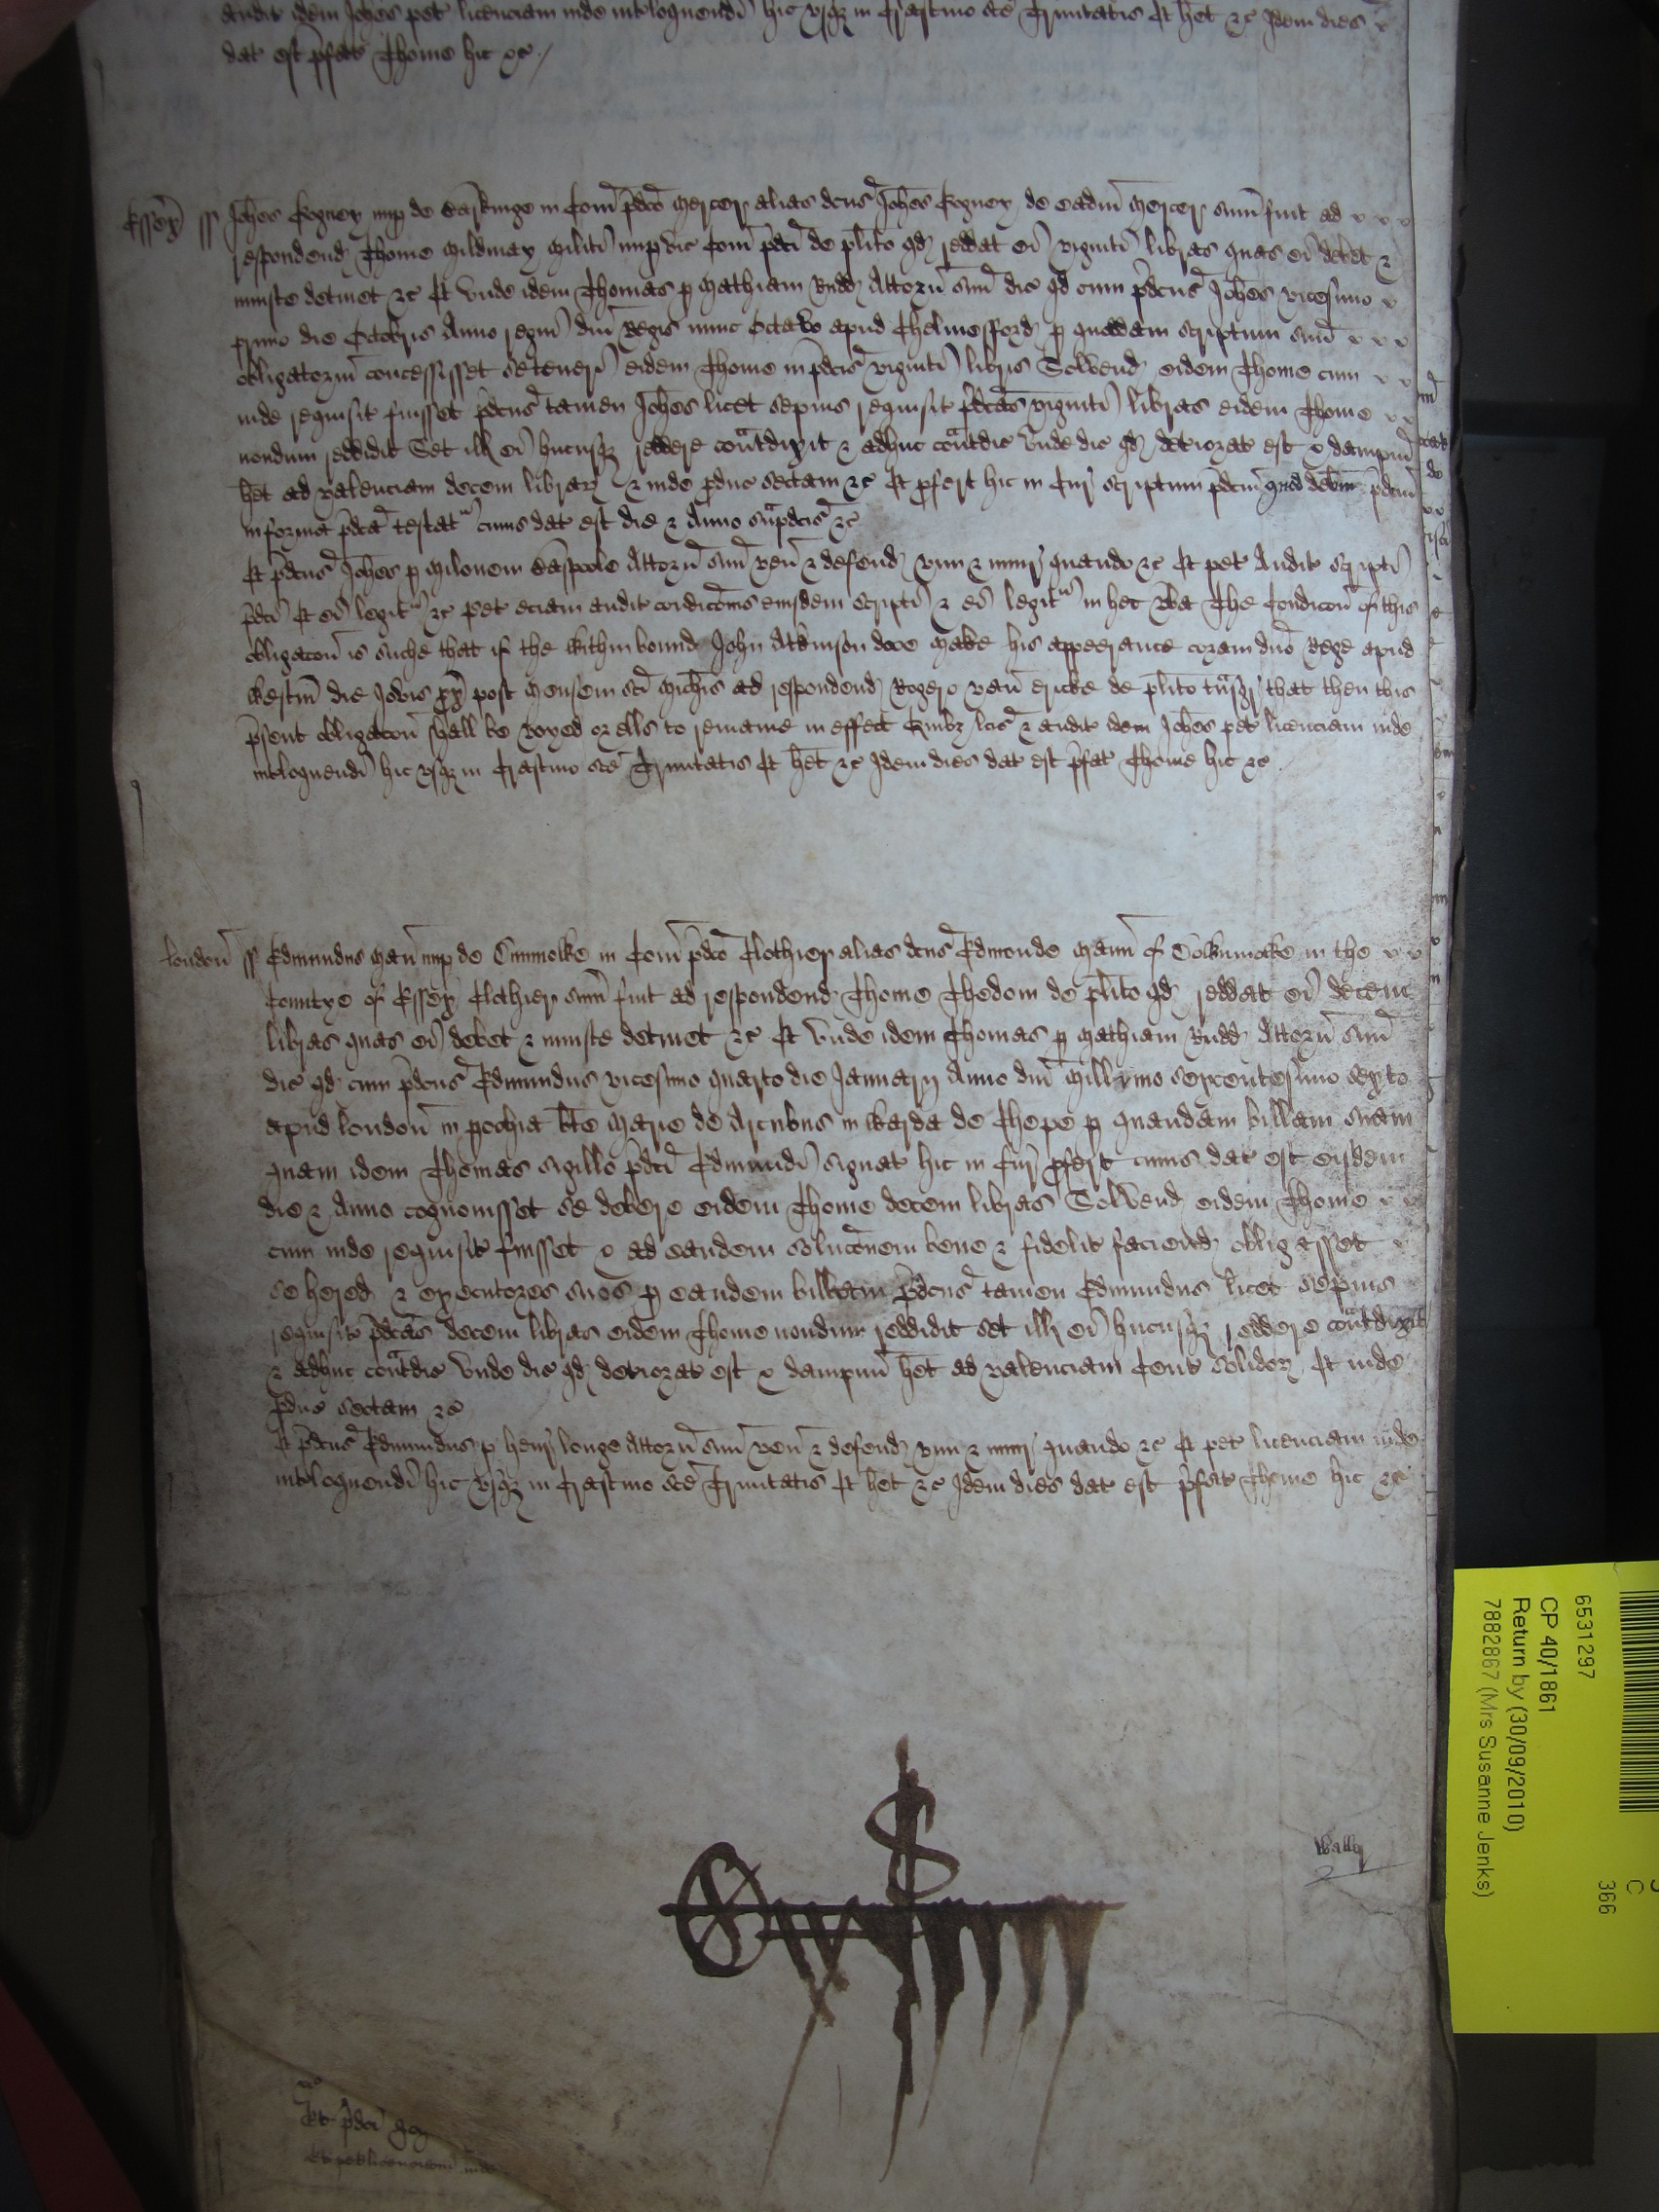 audit idem Joh̄es pet licenciam inde int̄loquendi hic usqȝ in Crastino sc̄e Trinitatis Et h̄et &c Idem dies
dat est p̄fat Thome hic &c /
Essex̄ ss Joh̄es Rogney nup de Barkinge in Com̄ p̄dc̄o Mercer alias dc̄us Joh̄es Rogney de eadm̄ Mercer sum̄ fuit ad
respondend Thome Mildmay Militi nup vic Com̄ p̄dc̄i de pl̄ito qd reddat ei viginti libras quas ei debet &
iniuste detinet &c Et unde idem Thomas p Mathiam Rudd Attorn̄ suu̅ dic qd cum p̄dc̄us Joh̄es vicesimo
primo die Octobris Anno regni dn̄i Regis nunc Octavo apud Chelmesford p quoddam scriptum suu̅
obligatoriu̅ concessisset se teneri eidem Thome in p̄dc̄is viginti libris Solvend eidem Thome cum
inde requisit fuisset p̄dc̄us tamen Joh̄es licet sepius requisit p̄dc̄as viginti libras eidem Thome
nondum reddidit Set ill ei hucusqȝ reddere cont̄dixit & adhuc cont̄dic Unde dic qd deteriorat est & dampnu̅
h̄et ad valenciam decem librar & inde p̄duc sectam &c Et p̄fert hic in Cur scriptum p̄dc̄m quod debm̄ p̄dc̄m
in forma p̄dc̄a testat cuius dat est die & Anno sup̄dc̄is &c
Et p̄dc̄us Joh̄es p Milonem Claypoole Attorn̄ suu̅ ven̄ & defend vim & iniur quando &c Et pet Audit scripti
p̄dc̄i Et ei legit &c pet eciam audit condic̄onis eiusdem scripti & ei legit in hec v̄ba The Condicon̄ of this
obligacon̄ is suche that if the within bound John Atkinson doe make his appearance coram dn̄o Rege apud
Westm̄ die Jovis px̄ post Mensem sc̄i Mich̄is ad respondend Rogero de pl̄ito tn̄sgr that then this
p̄sent obligacon̄ shall be voyed or ells to remaine in effect Quibȝ lc̄is & audit idem Joh̄es pet licenciam inde
int̄loquendi hic usqȝ in Crastino sc̄e Trinitatis Et h̄et &c Idem dies dat est p̄fat Thome hic &c
London̄ ss Edmundus Man̄ nup de in Com̄ p̄dc̄o Clothier alias dc̄us Edmonde Mann̄ of in the
Countye of Essex Clothier sum̄ fuit ad respondend Thome Thedom de pl̄ito qd reddat ei decem
libras quas ei debet & iniuste detinet &c Et unde idem Thomas p Mathiam Rudd Attorn̄ suu̅
dic qd cum p̄dc̄us Edmundus vicesimo quarto die Januarij Anno dn̄i Mill̄imo sexcentesimo sexto
apud London̄ in pochia b̄te Marie de Arcubus in Warda de Chepe p quandam billam suam
quam idem Thomas sigillo p̄dc̄i Edmundi signat hic in Cur p̄fert cuius dat est eisdem
die & Anno cognovisset se debere eidem Thome decem libras Solvend eidem Thome
cum inde requisit fuisset & ad eandem soluc̄onem bene & fidelit faciend obligasset
se hered & executores suos p eandem billam p̄dc̄us tamen Edmundus licet sepius
requisit p̄dc̄as decem libras eidem Thome nondum reddidit set ill ei hucusqȝ reddere cont̄dixit
& adhuc cont̄dic Unde dic qd deteriorat est & dampnu̅ h̄et ad valenciam Cent solidor Et inde
p̄duc sectam &c
Et p̄dc̄us Edmundus p Henr Longe Attorn̄ suu̅ ven̄ & defend vim & iniur quando &c Et pet licenciam inde
int̄loquendi hic usqȝ in Crastino sc̄e Trinitatis Et h̄et &c Idem dies dat est p̄fat Thome hic &c
Et p̄dc̄i
6531297
CP 40/1861
Return by (30/09/2010)
7882867 (Mrs Susanne Jenks)
C
366